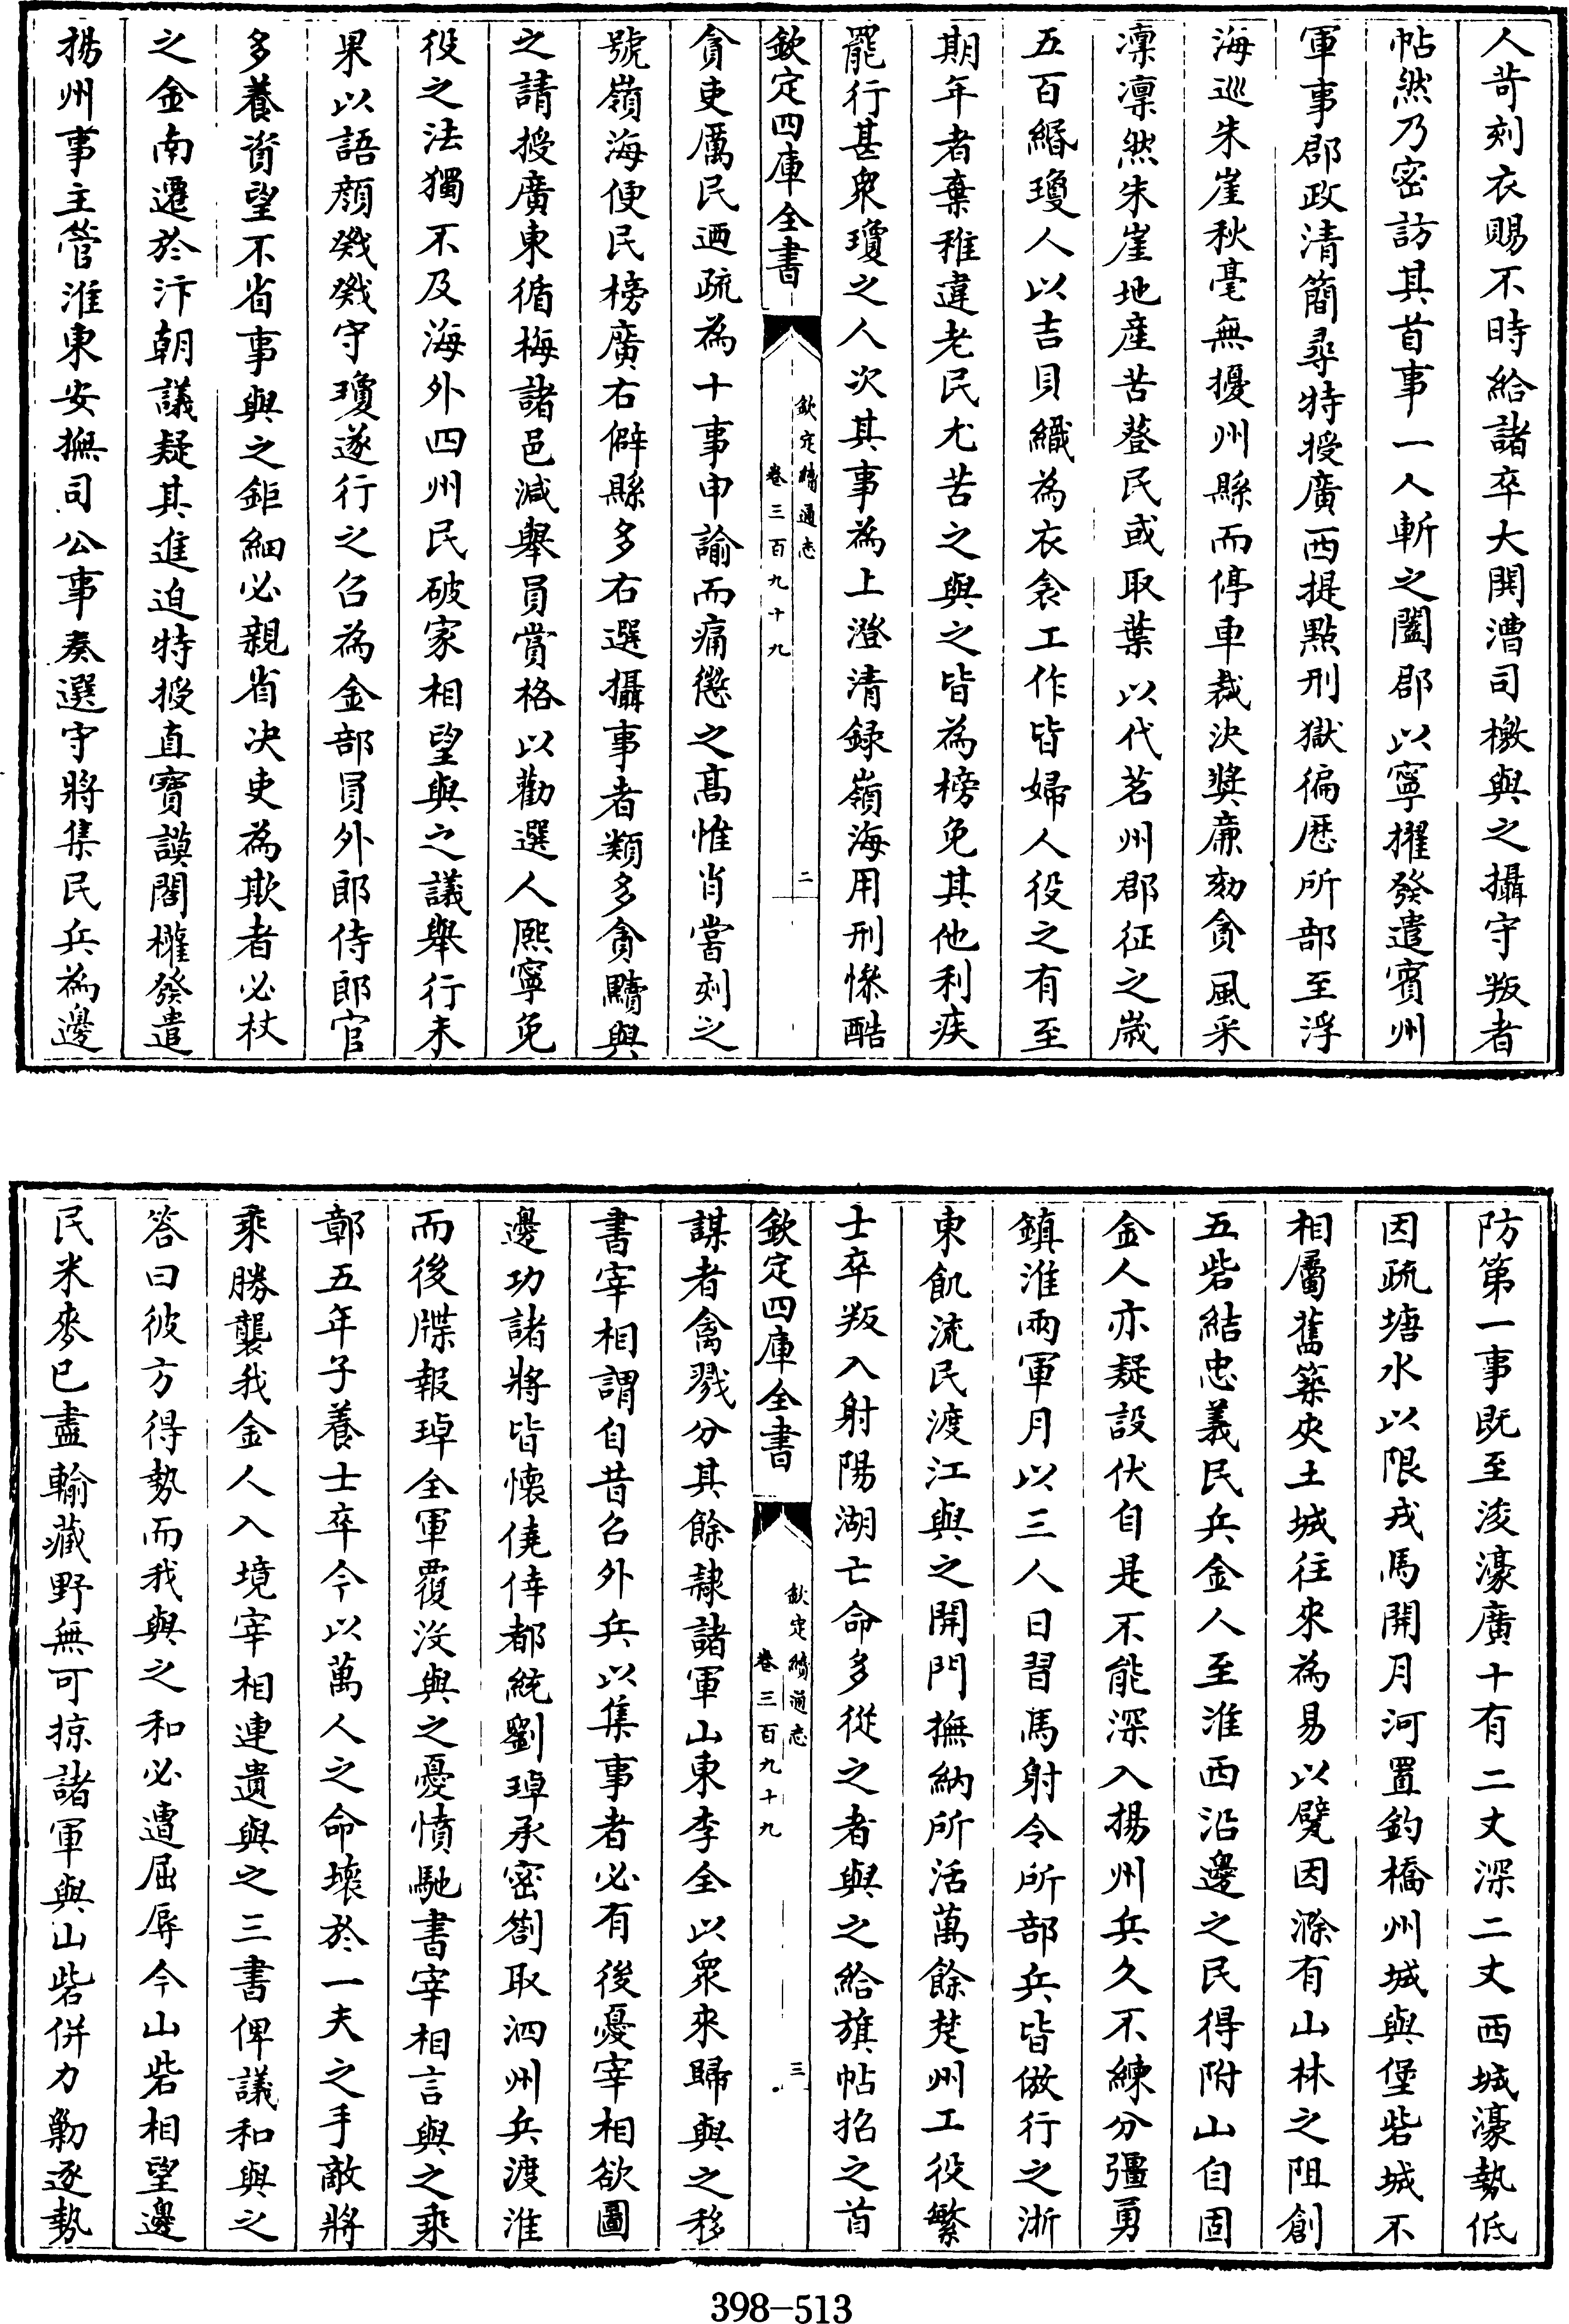 人苛刻衣賜不時給諸卒大鬨漕司檄與之攝守叛者
帖然乃密訪其首事一人斬之闔郡以寧擢發遣賓州
軍事郡政清簡尋特授廣西提點刑獄徧歴所部至浮
海巡朱崖秋毫無擾州縣而停車裁決獎廉劾貪風采
凛凛然朱崖地產苦䔲民或取葉以代茗州郡征之嵗
五百緡瓊人以吉貝織為衣衾工作皆婦人役之有至
期年者棄稚違老民尤苦之與之皆為榜免其他利疾
罷行甚衆瓊之人次其事為上澄清録嶺海用刑慘酷
欽定四庫全書
欽定續通志
卷三百九十九
二
貪吏厲民迺疏為十事申諭而痛懲之高惟肖嘗刻之
號嶺海便民榜廣右僻縣多右選攝事者類多貪黷與
之請授廣東循梅諸邑減舉員賞格以勸選人熙寧免
役之法獨不及海外四州民破家相望與之議舉行未
果以語顔戣戣守瓊遂行之召為金部員外郎侍郎官
多養資望不省事與之鉅細必親省决吏為欺者必杖
之金南遷於汴朝議疑其進迫特授直寶謨閣權發遣
揚州事主管淮東安撫司公事奏選守將集民兵為邊
防第一事既至浚濠廣十有二丈深二丈西城濠勢低
因疏塘水以限戎馬開月河置釣橋州城與堡砦城不
相屬舊築夾土城往來為易以甓因滁有山林之阻創
五砦結忠義民兵金人至淮西沿邊之民得附山自固
金人亦疑設伏自是不能深入揚州兵久不練分彊勇
鎮淮兩軍月以三人日習馬射令所部兵皆倣行之浙
東飢流民渡江與之開門撫納所活萬餘楚州工役繁
士卒叛入射陽湖亡命多從之者與之給旗帖招之首
欽定四庫全書
欽定續通志
卷三百九十九
三
謀者禽戮分其餘隷諸軍山東李全以衆來歸與之移
書宰相謂自昔召外兵以集事者必有後憂宰相欲圖
邊功諸將皆懷僥倖都統劉琸承密劄取泗州兵渡淮
而後牒報琸全軍覆沒與之憂憤馳書宰相言與之乘
鄣五年子養士卒今以萬人之命壞於一夫之手敵將
乘勝襲我金人入境宰相連遺與之三書俾議和與之
答曰彼方得勢而我與之和必遭屈辱今山砦相望邊
民米麥已盡輸藏野無可掠諸軍與山砦併力勦逐勢
398-513